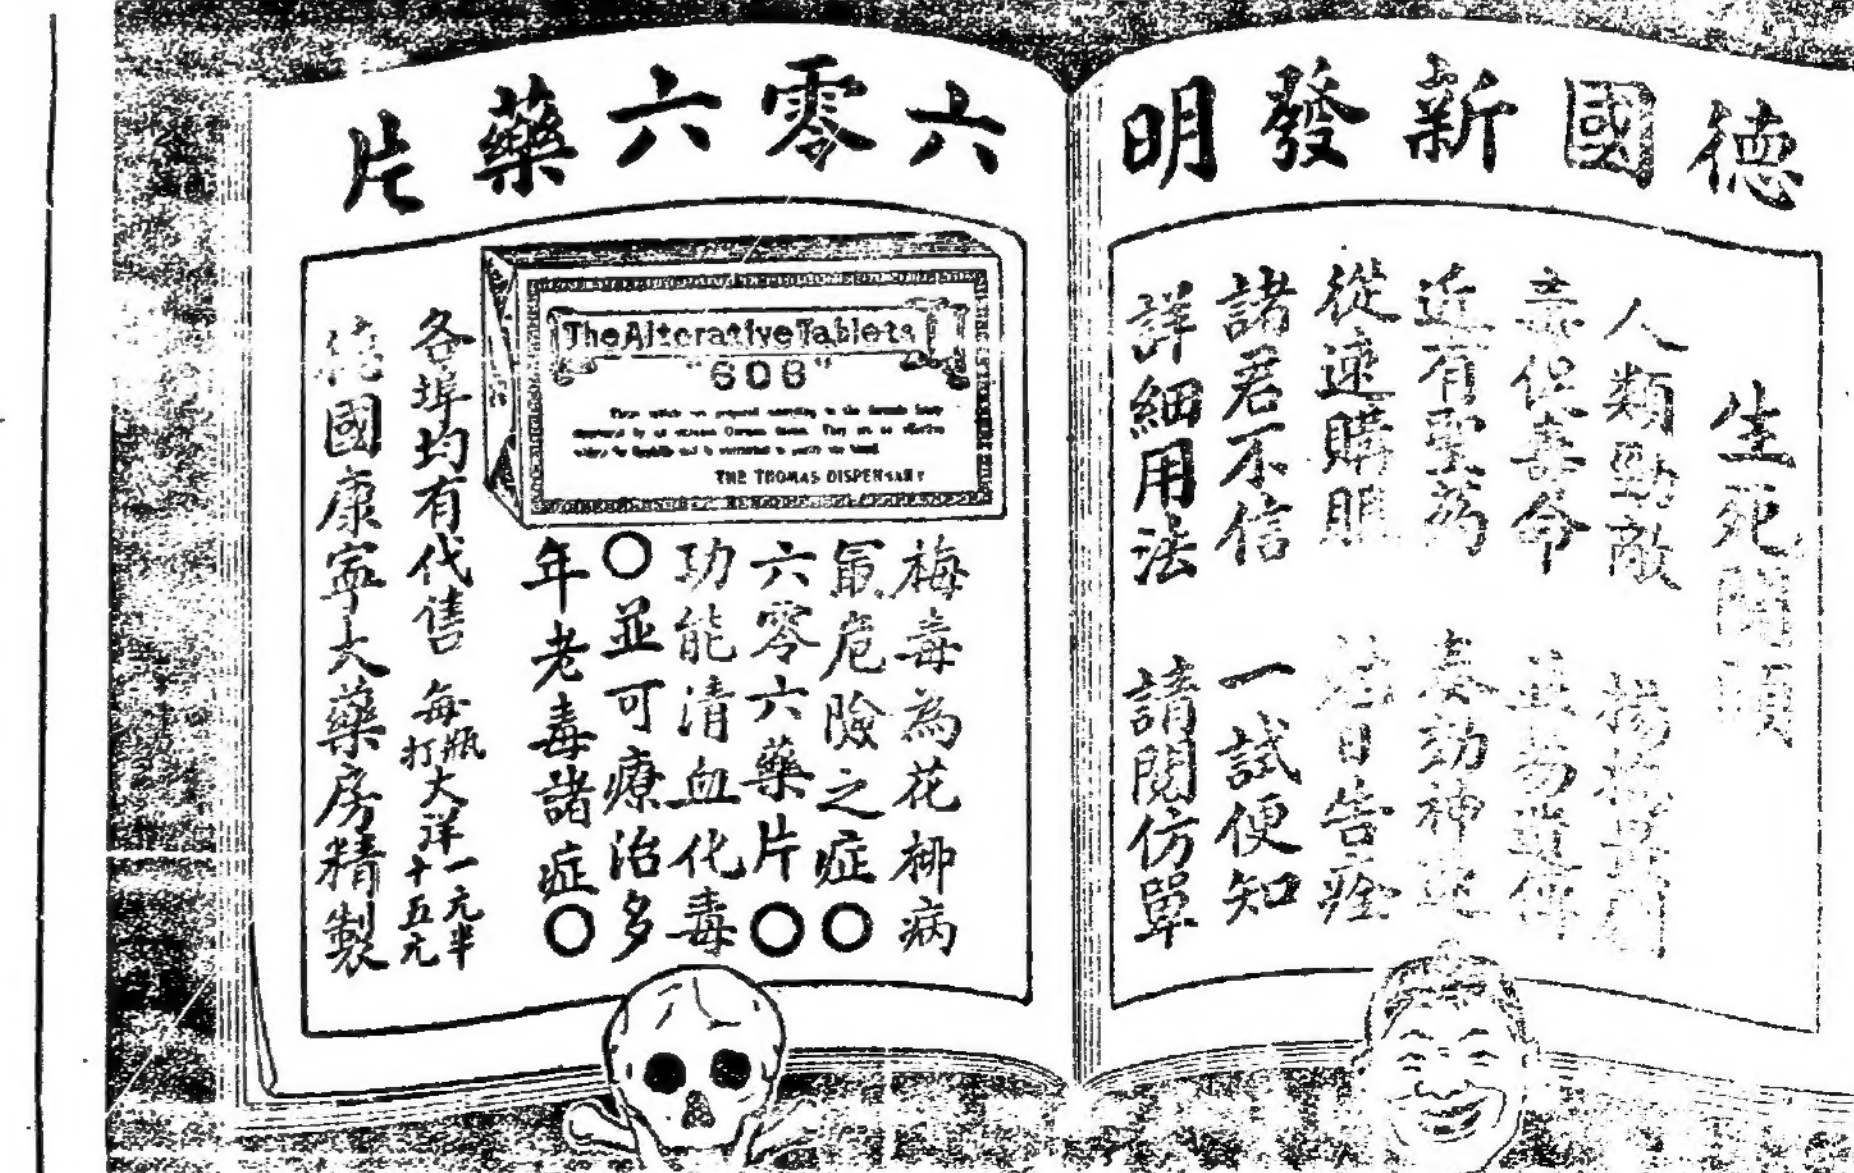 德國新發明
六零六藥片
生死關頭
人類勁敵 楊梅
毒侵壽命
近有聖葯 奏効神速
從速購服 日告痊
諸君不信 一試便知
詳細用法 請閱仿單
The Alterative Tablets
"606"
THE THOMAS DISPENSARY
梅毒為花柳病
最危險之症〇
六零六藥片〇
功能清血化毒
〇並可療治多
年老毒諸症〇
各埠均有代售 每瓶大洋一元半
打十五元
德國康寧大藥房精製